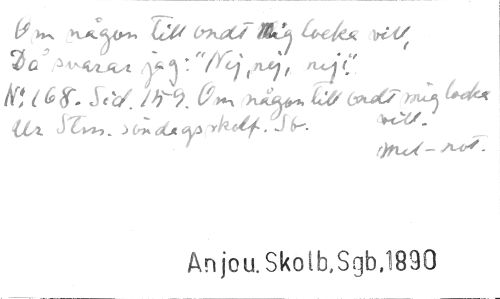 Om någon till ondt mig locka vill,
Då svarar jag: "Nej, nej, nej!"
No: 168. Sid. 159. Om någon till ondt mig locka
vill.
Ur Stm. söndagsskolf. Sb.
mel-not.
Anjou.Skolb,Sgb,1890